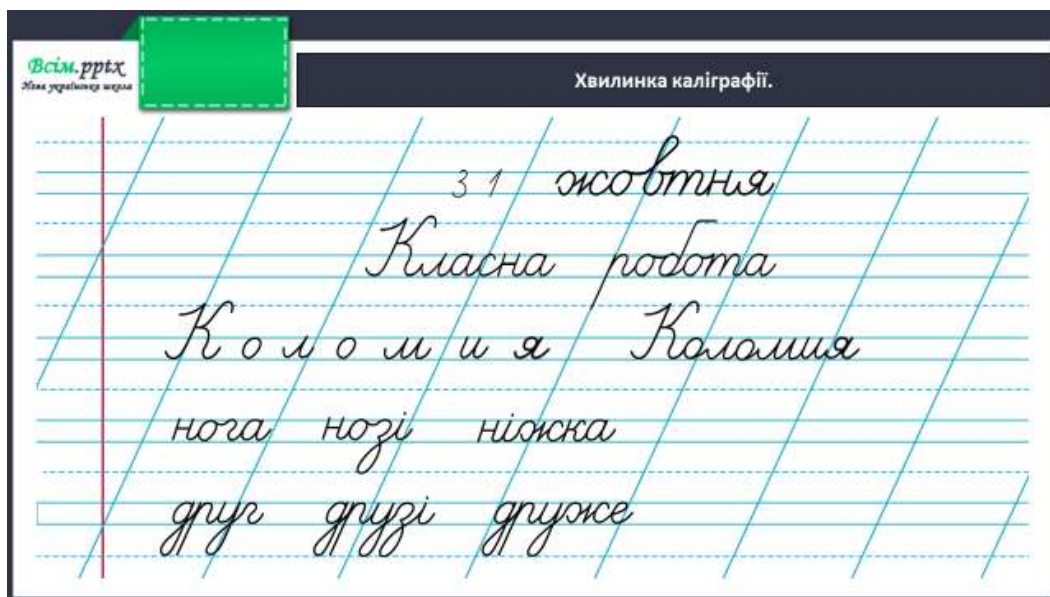 Всім.pptx
Нова українська школа
Хвилинка каліграфії.
3 1 жовтня
Класна робота
К о л о м и я Коломия
нога нозі ніжка
друг друзі друже